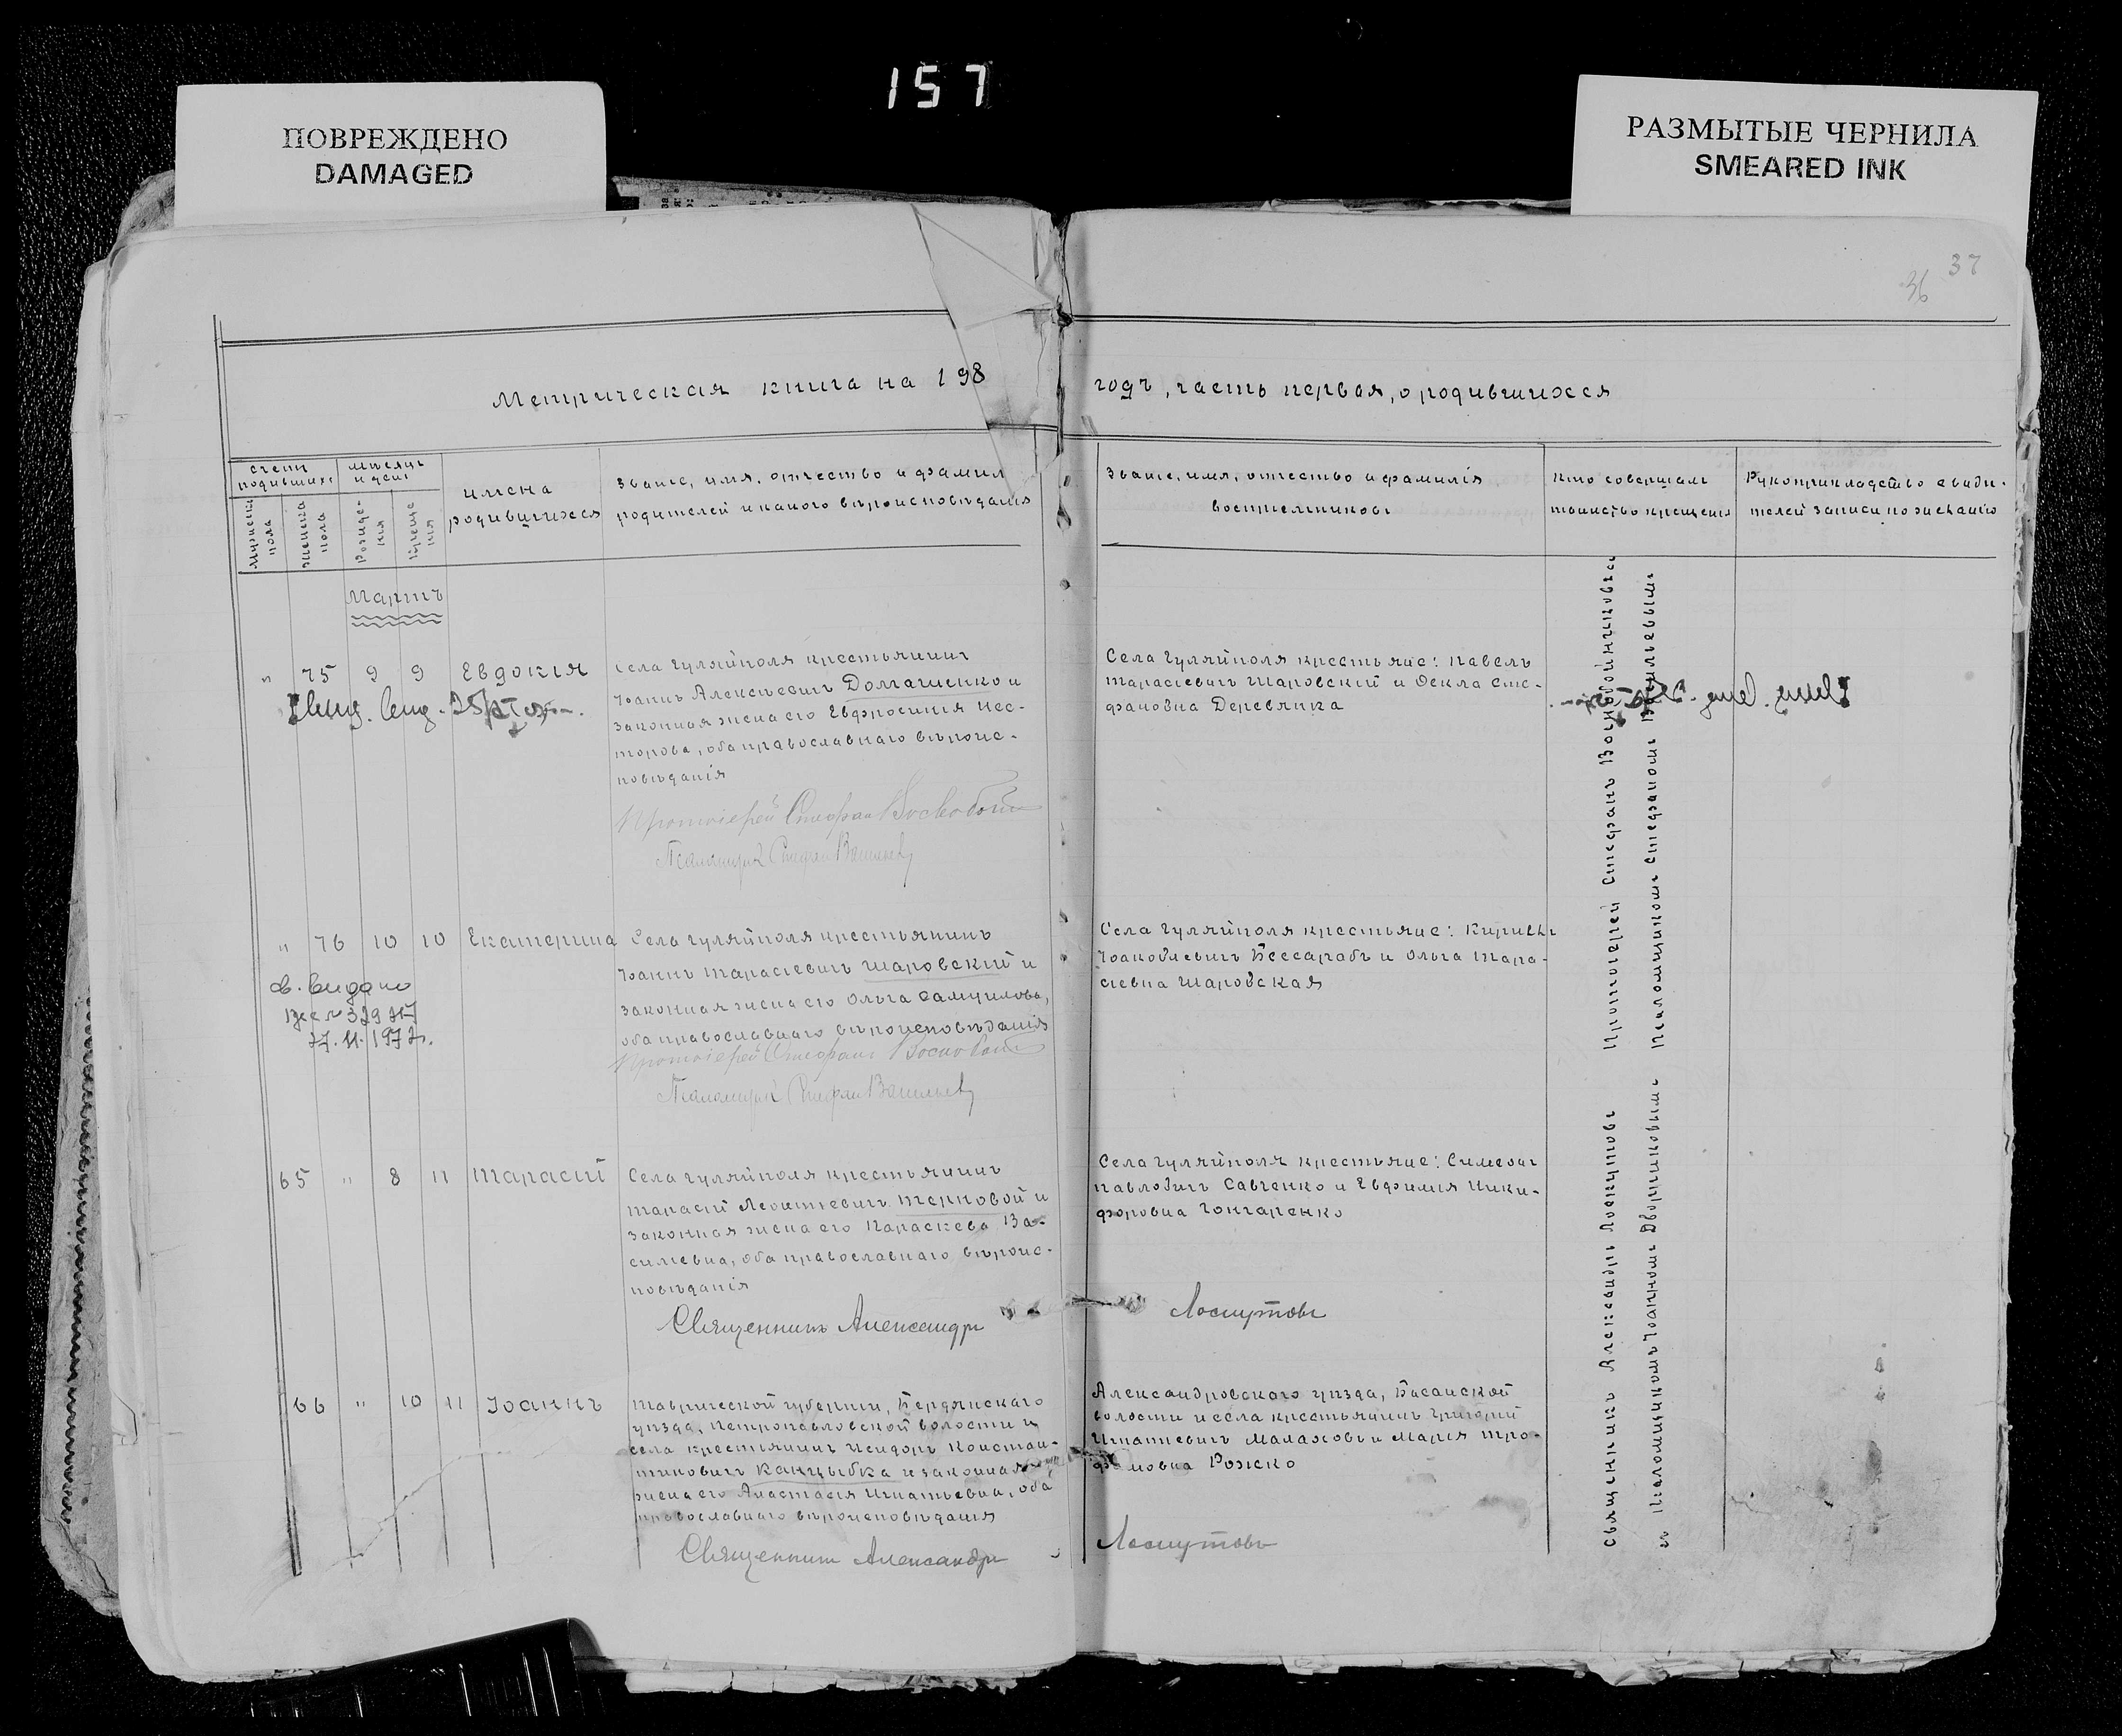 157
ПОВРЕЖДЕНО
DAMAGED
РАЗМЫТЫЕ ЧЕРНИЛА
SMEARED INK
37
36
Метрическая книга на 198
годъ, часть первая, о родившихся
счетъ родившихъ
мѣсяцъ и день
мужеска пола
женска пола
Рожде-
ния
Креще
ния
имена
родившихся
Званіе, имя, отчество и фамил
родителей и какого вѣроисповѣданія
Званіе, имя, отчество и фамилія
воспріемниковъ
Кто совершалъ
таинство крещенія
Рукоприкладство свиде-
телей записи по желанію
Мартъ
" 75 9 9 Евдокія
Села Гуляйполя крестьянинъ
Іоаннъ Алексѣевичъ Долгашенко и
законная жена его Евфросинія Нес-
торова, оба православнаго вѣроис-
повѣданія
Протоіерей Стефанъ Воскобой
Псаломщикъ Стефан Васильевъ
Села Гуляйполя крестьяне: Павелъ
Тарасіевичъ Шаровскій и Ѳекла Сте-
фановна Деревянка
" 76 10 10 Екатерина
св. видано
329
27.11.197
Села Гуляйполя крестьянинъ
Іоаннъ Тарасіевичъ Шаровскій и
законная жена его Ольга Самуилова,
оба православнаго вѣроисповѣданія
Протоіерей Стефанъ Воскобой
Псаломщикъ Стефан Васильевъ
Села Гуляйполя крестьяне: Кириллъ
Іаковлевичъ Бессарабъ и Ольга Тара-
сіевна Шаровская
65 " 8 11 Тарасій
Села Гуляйполя крестьянинъ
Тарасій Леонтіевичъ Терновой и
законная жена его Параскева Ва-
силіевна, оба православнаго вѣроис-
повѣданія
Священникъ Александръ Лоскутовъ
Села Гуляйполя крестьяне: Симеонъ
Павловичъ Савченко и Евфимія Ники-
форовна Гончаренко
66 " 10 11 Іоаннъ
Таврической губерніи, Бердянскаго
уѣзда, Петропавловской волости и
села крестьянинъ Исидоръ Констан-
тиновичъ Канцыбка и законная
жена его Анастасія Игнатьевна, оба
православнаго вѣроисповѣданія
Священникъ Александръ Лоскутовъ
Александровскаго уѣзда, Басанской
волости и села крестьянинъ Григорій
Игнатіевичъ Малаховъ и Марія Тро-
фимовна Рожко
Протоіерей Стефанъ Воскобойниковъ съ
Псаломщикомъ Стефаномъ Васильевымъ
Священникъ Александръ Лоскутовъ
съ Псаломщикомъ Іоанномъ Дворниковымъ